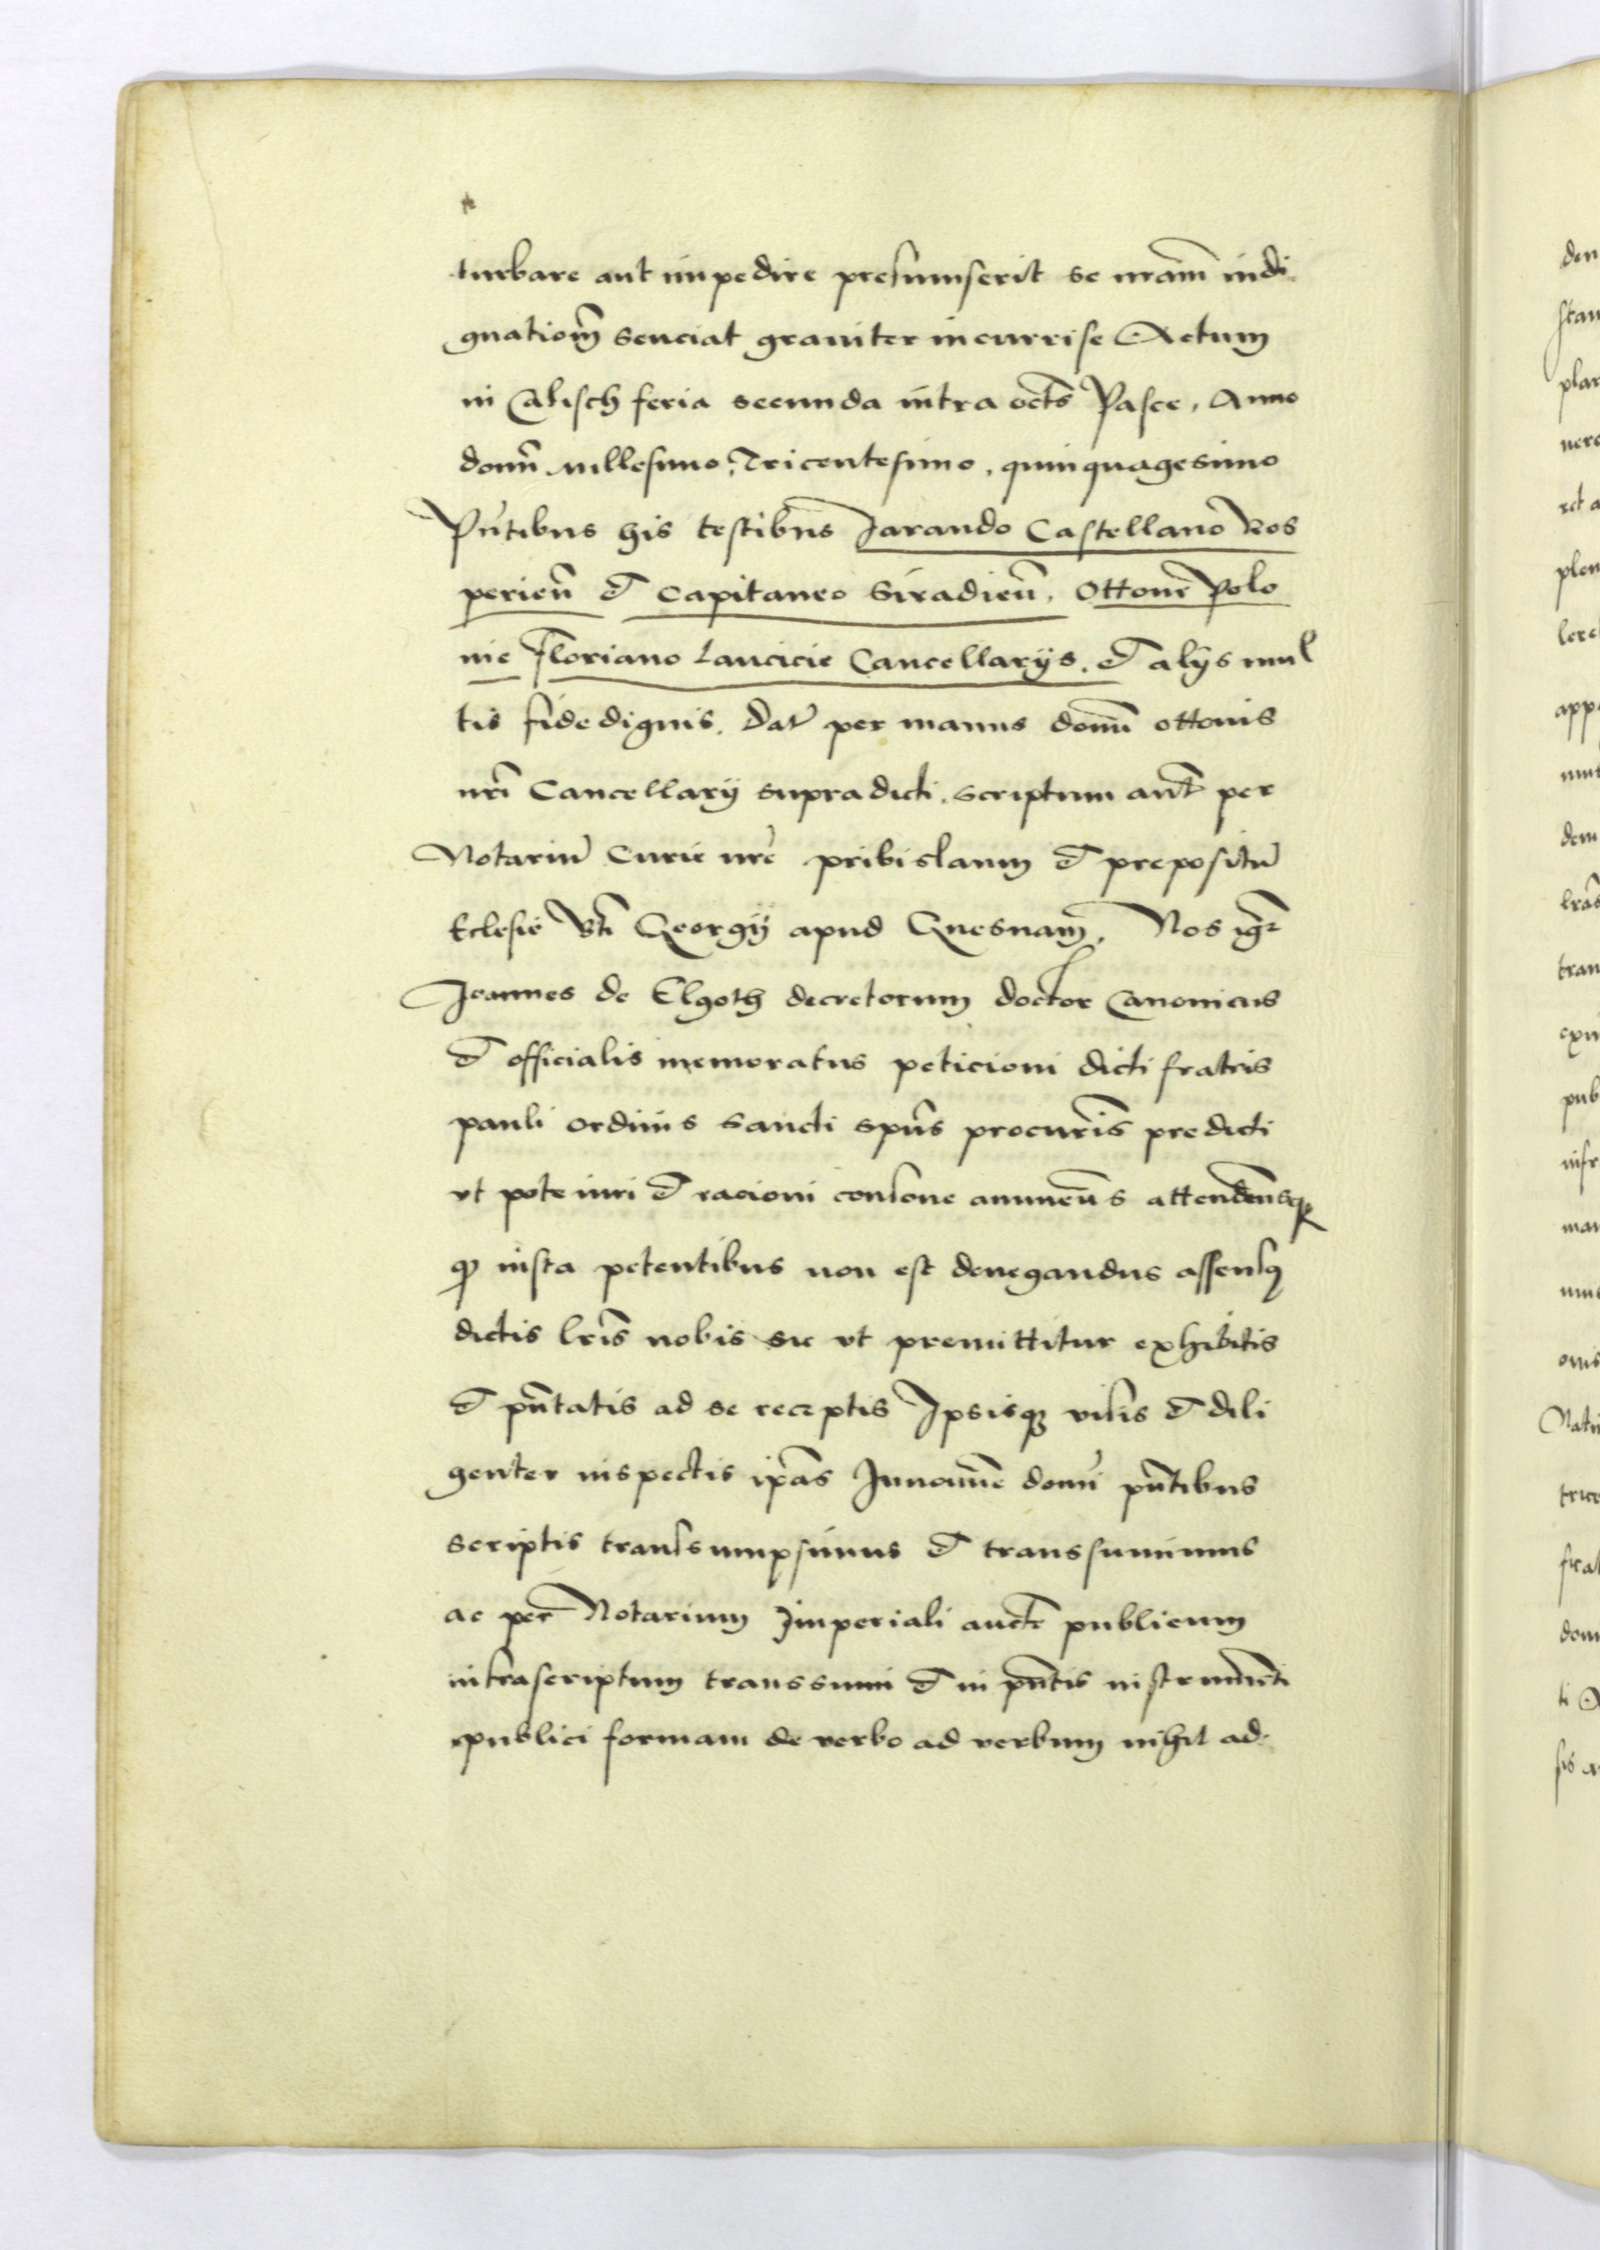 turbare aut impedire presumserit se nr̃am indi
gnatiom̃ senciat grauiter incurrise Actum
in Calisch feria secunda intra octs̃ Pasce, Anno
domñ Millesimo, Tricentesimo, quinquagesimo
Pñtibus his testibus Jarando Castellano Ros
perieñ et Capitaneo Siradieñ, Ottone Polo
nie Floriano Lancicie Cancellarijs, et alijs mul
tis fide dignis, Dat̃ per manus domñ ottonis
nrĩ Cancellarij supradicti, scriptum aut̃ per
Notariũ Curie nrẽ pribislaum et prepositũ
Eclesie btĩ Georgij apud Gnesnam, Nos igr̃
Joannes de Elgoth decretorum doctor Canonicus
et officialis memoratus peticioni dicti fratris
pauli ordinis sancti spũs procurĩs predicti
vt pote iuri et racioni consone annueñs attendensq̃
qp iusta petentibus non est denegandus assensꝰ
dictis lrĩs nobis sic vt premittitur exhibitis
et pñtatis ad se receptis Ipsisqꝫ visis et dili
genter inspectis ip̃as Innomĩe domĩ pñtibus
scriptis transsumpsimus et transsumimus
ac per Notarium Imperiali auctẽ publicum
infrascriptum transsumi et in pñtis instrumẽti
publici formam de verbo ad verbum nihil ad